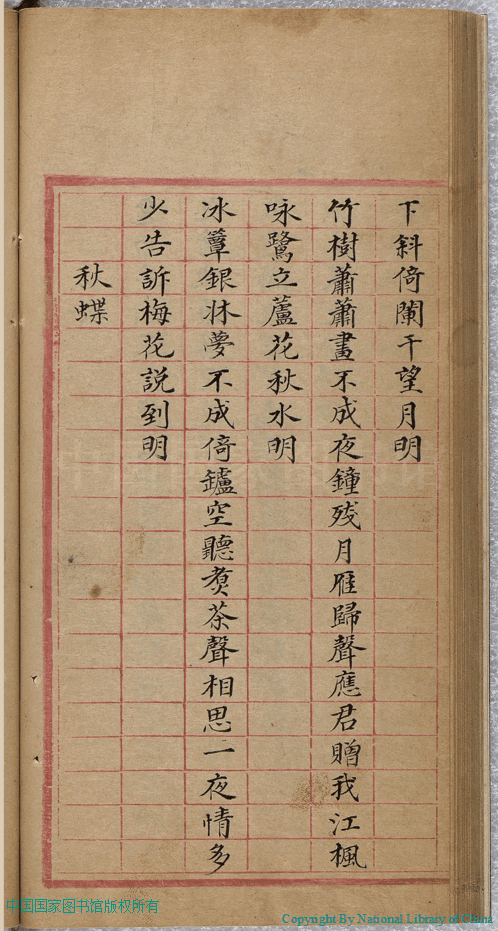 下斜倚闌干望月明
竹樹蕭蕭畫不成夜鐘残月雁歸聲應君贈我江楓
咏鷺立蘆花秋水明
冰簟銀牀夢不成倚鑪空聽煑茶聲相思一夜情多
少告訴梅花説到明
秋蝶
中国国家图书馆版权所有
Copyright By National Library of China